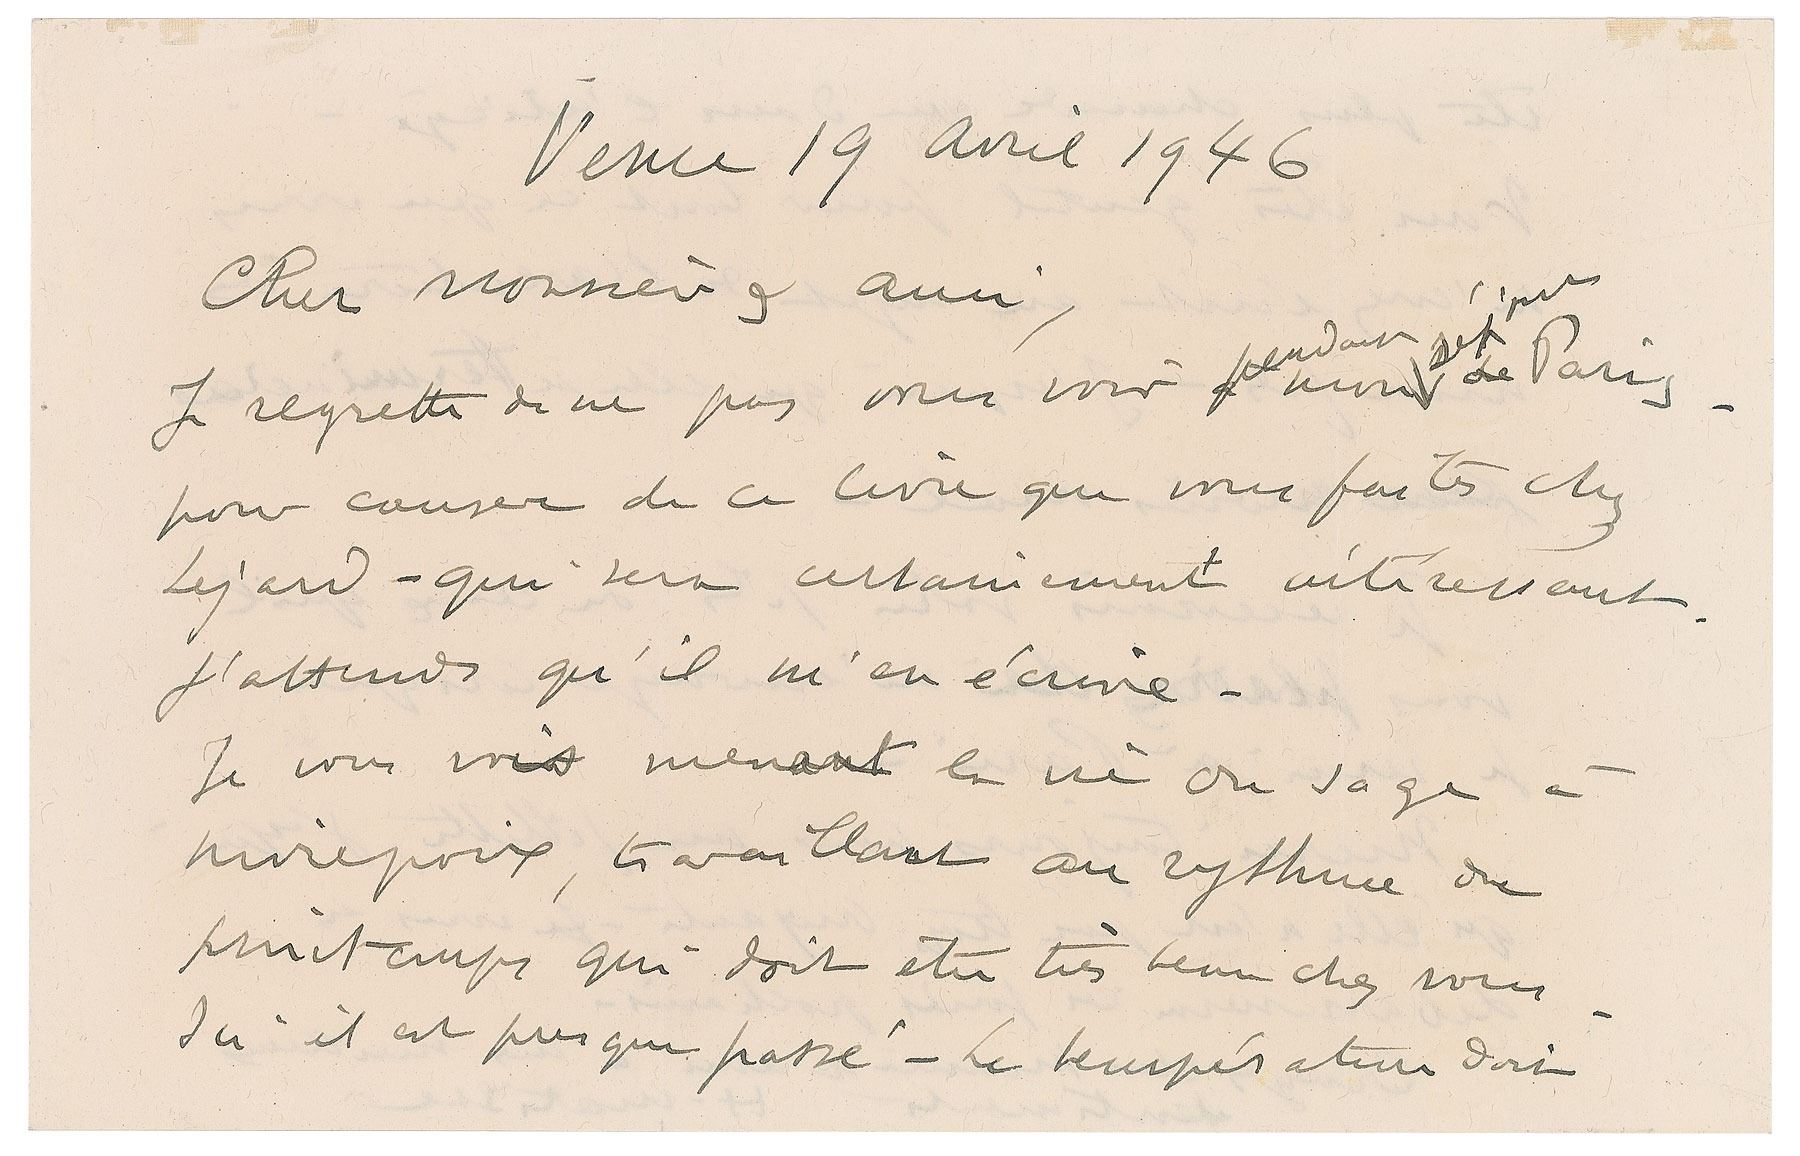 Vence 19 avril 1946
Cher Monsieur & ami,
Je regrette de ne pas vous voir pendant mon séjour de Paris -
pour causer de ce livre que vous faites chez
Lejard - qui sera certainement intéressant.
J'attends qu'il m'en écrive -
Je vous vois menant la vie du sage à
Mirepoix, travaillant au rythme du
printemps qui doit être très beau chez vous -
Ici il est presque passé - La température doit